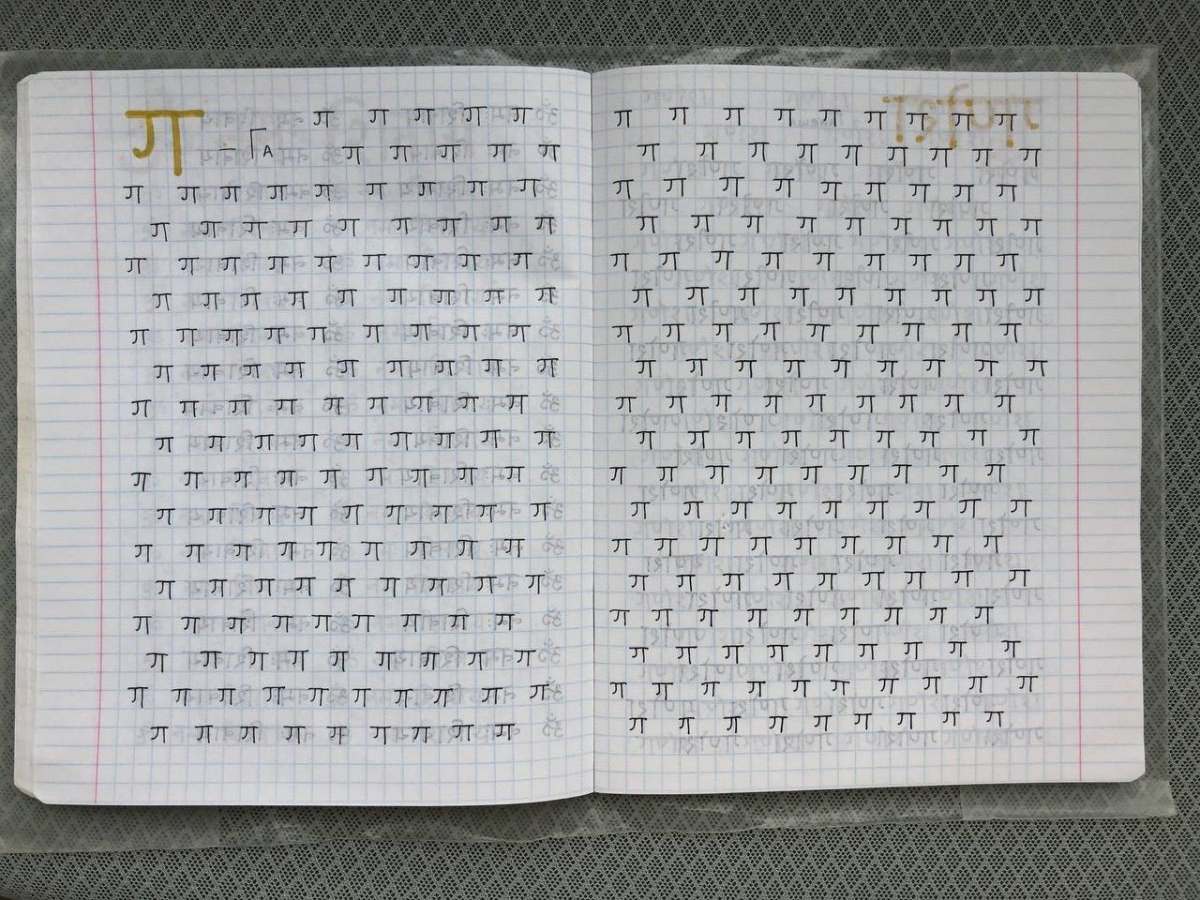 ग ग ग ग ग ग
– Га ग ग ग ग ग
ग ग ग ग ग ग ग ग ग
ग ग ग ग ग ग ग ग ग
ग ग ग ग ग ग ग ग ग
ग ग ग ग ग ग ग ग ग
ग ग ग ग ग ग ग ग ग
ग ग ग ग ग ग ग ग ग
ग ग ग ग ग ग ग ग ग
ग ग ग ग ग ग ग ग ग
ग ग ग ग ग ग ग ग ग
ग ग ग ग ग ग ग ग ग
ग ग ग ग ग ग ग ग ग
ग ग ग ग ग ग ग ग ग
ग ग ग ग ग ग ग ग ग
ग ग ग ग ग ग ग ग ग
ग ग ग ग ग ग ग ग ग ग
ग ग ग ग ग ग ग ग ग
ग ग ग ग ग ग ग ग ग
ग ग ग ग ग ग ग ग ग
ग ग ग ग ग ग ग ग ग
ग ग ग ग ग ग ग ग ग
ग ग ग ग ग ग ग ग ग
ग ग ग ग ग ग ग ग ग
ग ग ग ग ग ग ग ग ग
ग ग ग ग ग ग ग ग ग
ग ग ग ग ग ग ग ग ग
ग ग ग ग ग ग ग ग ग
ग ग ग ग ग ग ग ग ग
ग ग ग ग ग ग ग ग ग
ग ग ग ग ग ग ग ग ग
ग ग ग ग ग ग ग ग ग
ग ग ग ग ग ग ग ग ग
ग ग ग ग ग ग ग ग ग
ग ग ग ग ग ग ग ग ग ग
ग ग ग ग ग ग ग ग ग